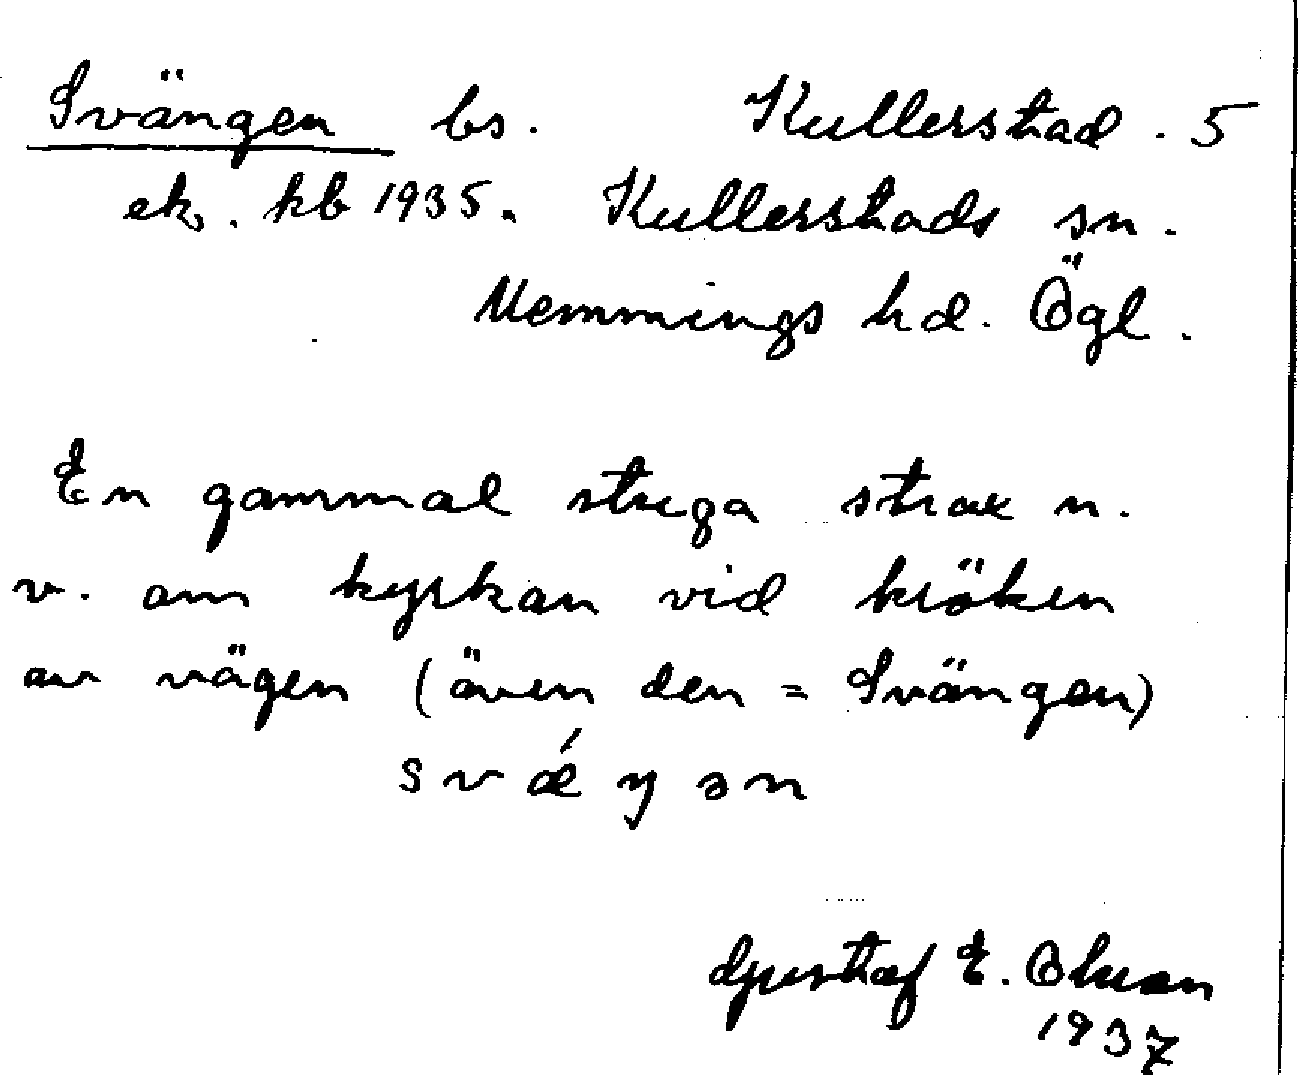 Svängen bs. Kullerstad. 5
ek. kb 1935. Kullerstads sn.
Memmings hd. Ögl.
En gammal stuga strax n.
v. om kyrkan vid kröken
av vägen (även den = Svängen)
svǽŋən
Gustaf E. Olsson
1937